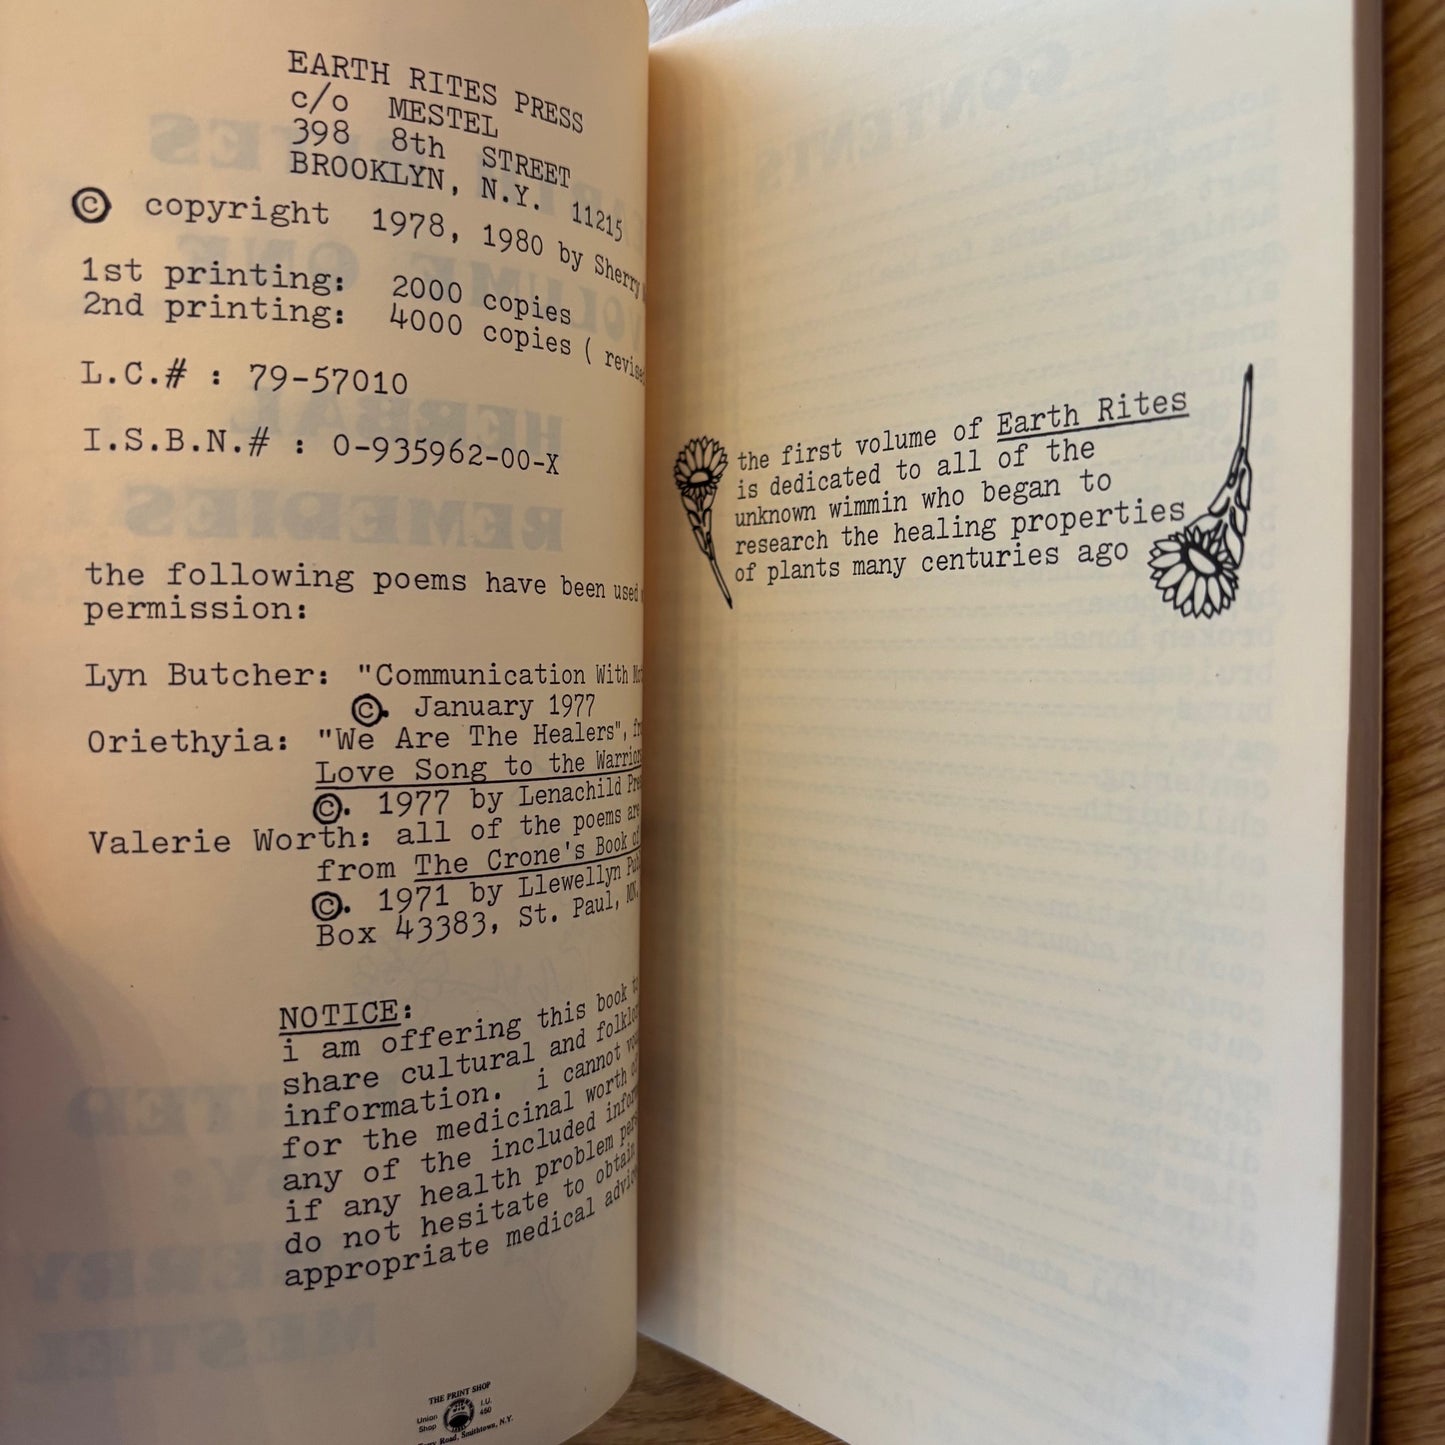 EARTH RITES PRESS
c/o MESTEL
398 8th STREET
BROOKLYN, N.Y. 11215
© copyright 1978, 1980 by Sherry
1st printing: 2000 copies
2nd printing: 4000 copies ( revised
L.C.# : 79-57010
I.S.B.N.# : 0-935962-00-X
the following poems have been used
permission:
Lyn Butcher: "Communication With
©. January 1977
Oriethyia: "We Are The Healers",
Love Song to the Warriors
©. 1977 by Lenachild
Valerie Worth: all of the poems are
from The Crone's Book of
©. 1971 by Llewellyn
Box 43383, St. Paul, MN.
NOTICE:
i am offering this book to
share cultural and
information. i cannot
for the medicinal worth of
any of the included
if any health problem
do not hesitate to obtain
appropriate medical
THE PRINT SHOP
Union I.U.
Shop 450
Road, Smithtown, N.Y.
the first volume of Earth Rites
is dedicated to all of the
unknown wimmin who began to
research the healing properties
of plants many centuries ago